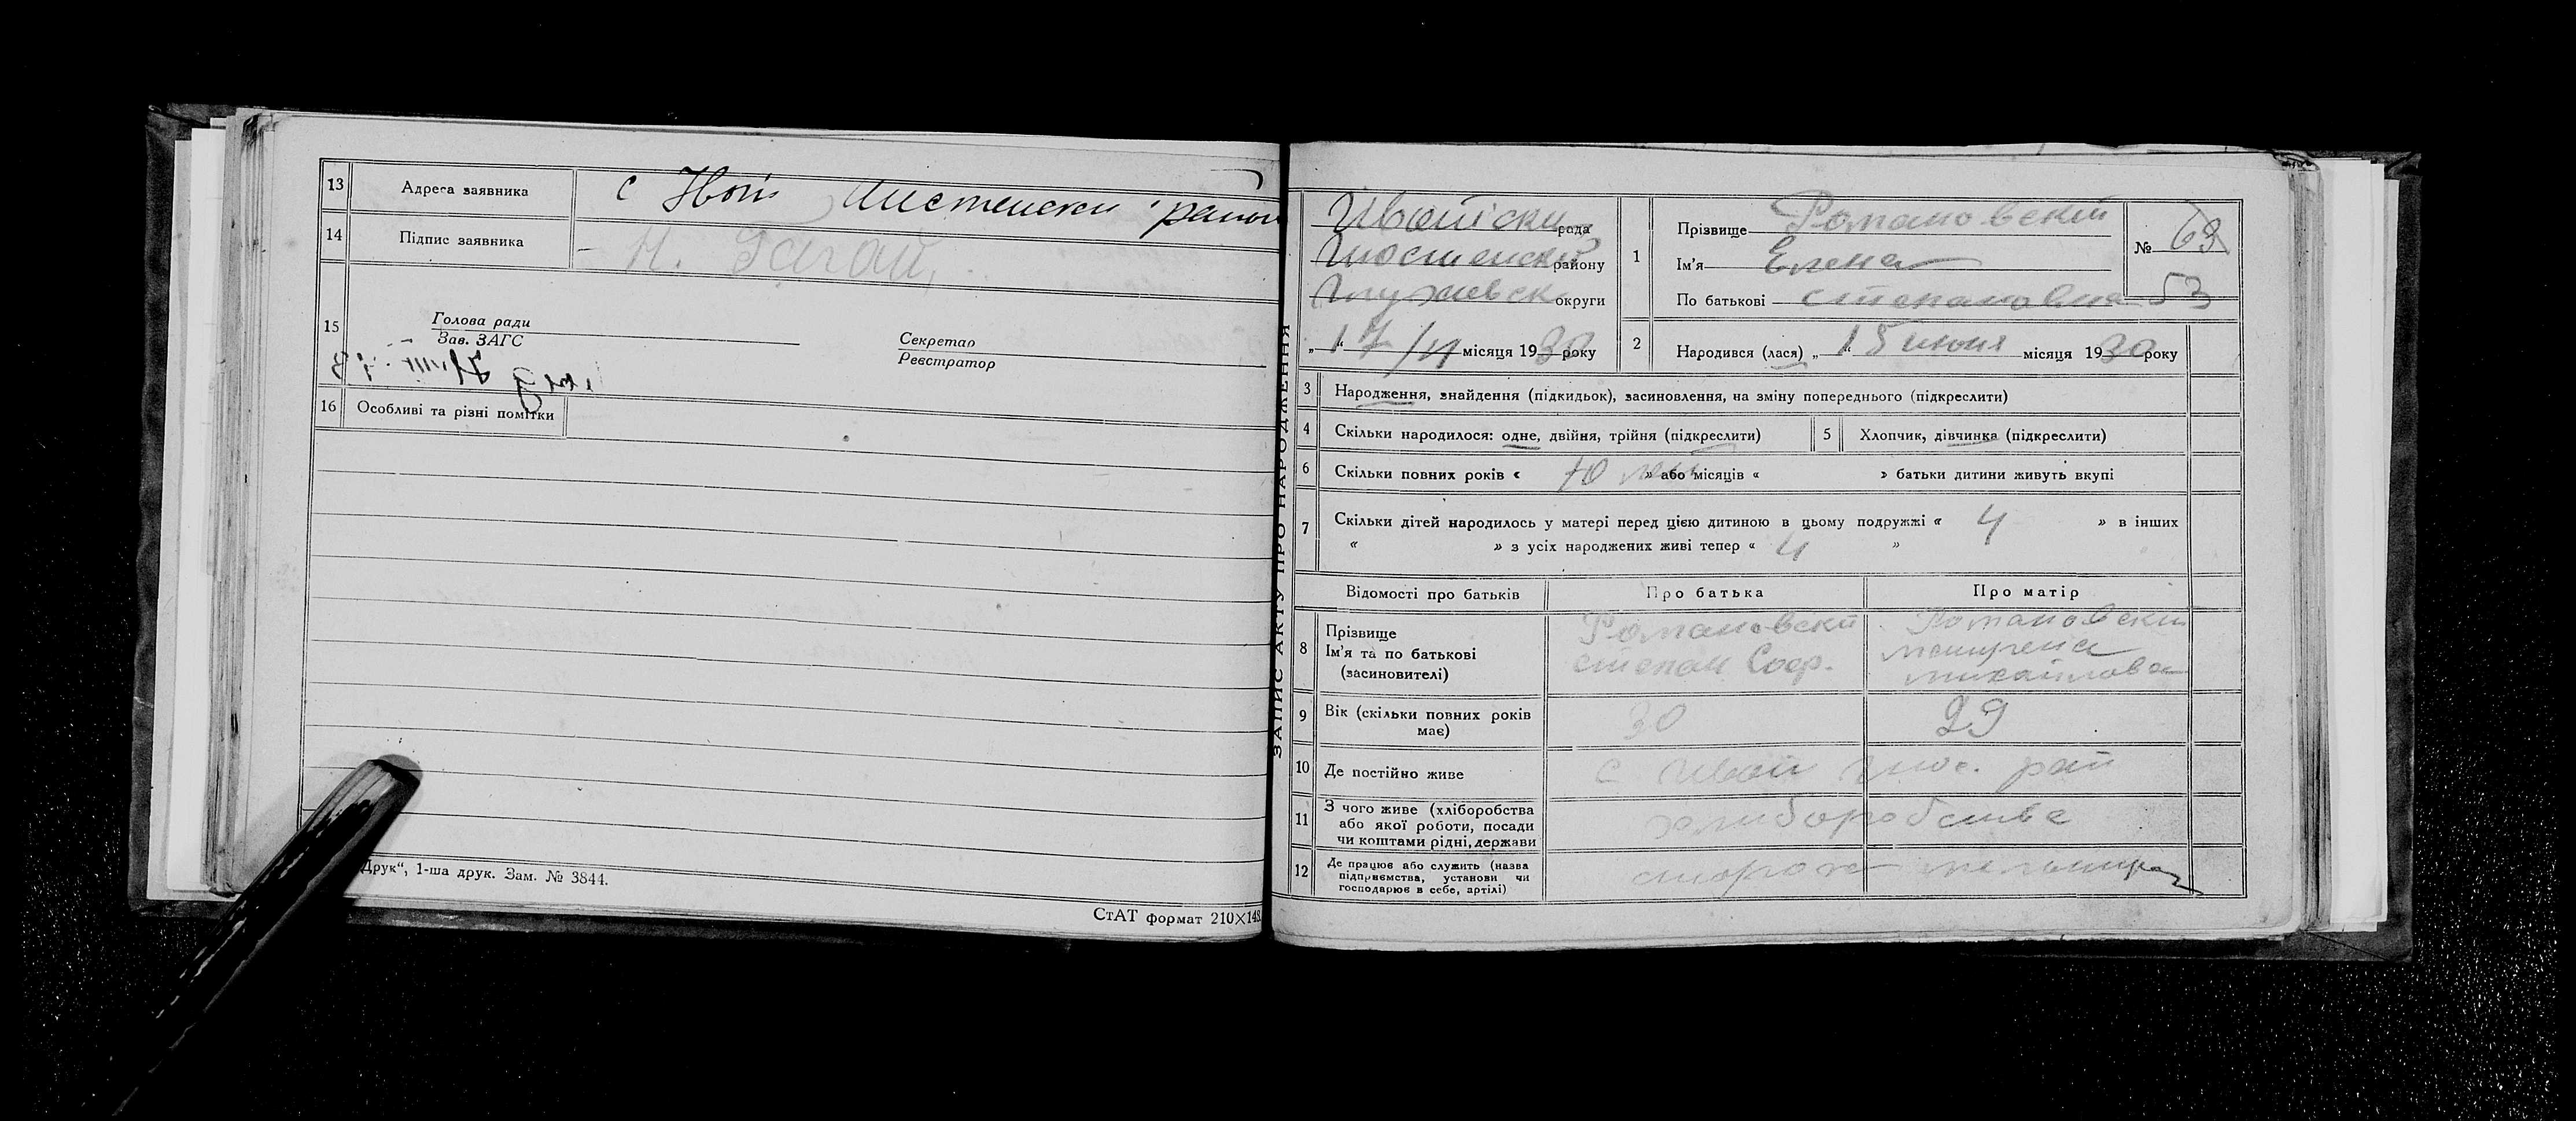 13 Адреса заявника с Ивот Шостенски район
14 Підпис заявника Н. Гагай
15 Голова ради
Зав. ЗАГС
Секретар
Реєстратор
16 Особливі та різні помітки
Друк“, 1-ша друк. Зам. № 3844.
СтАТ формат 210×148.
ЗАПИС АКТУ ПРО НАРОДЖЕННЯ
Ивотски рада
Шостенский району
Глуховск округи
„17“/VI місяця 1930 року
1 Прізвище Романовский
Ім’я Елена
По батькові Степановна
№ 63
53
2 Народився (лася) „15“ июня місяця 1930 року
3 Народження, знайдення (підкидьок), засиновлення, на зміну попереднього (підкреслити)
4 Скільки народилося: одне, двійня, трійня (підкреслити) 5 Хлопчик, дівчинка (підкреслити)
6 Скільки повних років « 10 лет » або місяців « » батьки дитини живуть вкупі
7 Скільки дітей народилось у матері перед цією дитиною в цьому подружжі « 4 » в інших
« » з усіх народжених живі тепер « 4 »
Відомості про батьків Про батька Про матір
8 Прізвище
Ім’я та по батькові
(засиновителі)
Романовский
Степан Соф.
Романовский
Михайлова
9 Вік (скільки повних років
має)
30 29
10 Де постійно живе с Ивот Шос. рай
11 З чого живе (хліборобства
або якої роботи, посади
чи коштами рідні, держави
хлиборобства
12 Де працює або служить (назва
підприємства, установи чи
господарює в себе, артілі)
сторож